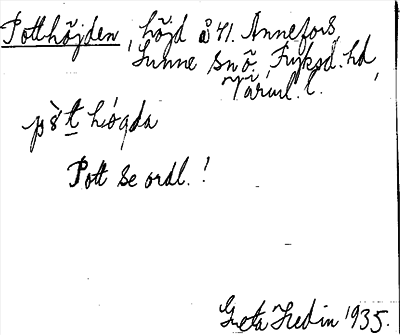 Potthöjden, höjd å 41. Annefors,
Sunne sn ö, Fryksd. hd,
Värml. l.
pòt högda
Pott se ordl.!
Greta Hedin 1935.